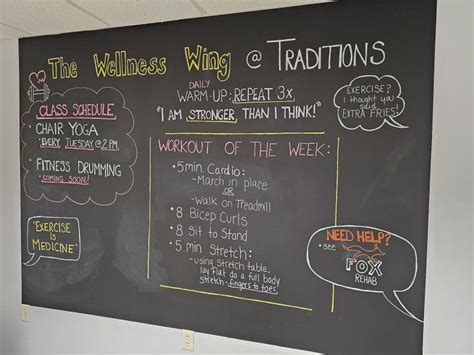 The Wellness Wing @ Traditions
CLASS SCHEDULE
• CHAIR YOGA
- EVERY TUESDAY @ 2 PM
• FITNESS DRUMMING
- COMING SOON!
"EXERCISE
IS
MEDICINE"
DAILY
WARM-UP: REPEAT 3x
"I AM STRONGER, THAN I THINK!"
WORKOUT OF THE WEEK:
• 5 min. Cardio:
- March in place
OR
- Walk on Treadmill
• 8 Bicep Curls
• 8 Sit to Stand
• 5 min. Stretch:
- using stretch table,
lay flat do a full body
stretch - fingers to toes!
EXERCISE?
I thought you
said
EXTRA FRIES!
NEED HELP?
• see
FOX
REHAB